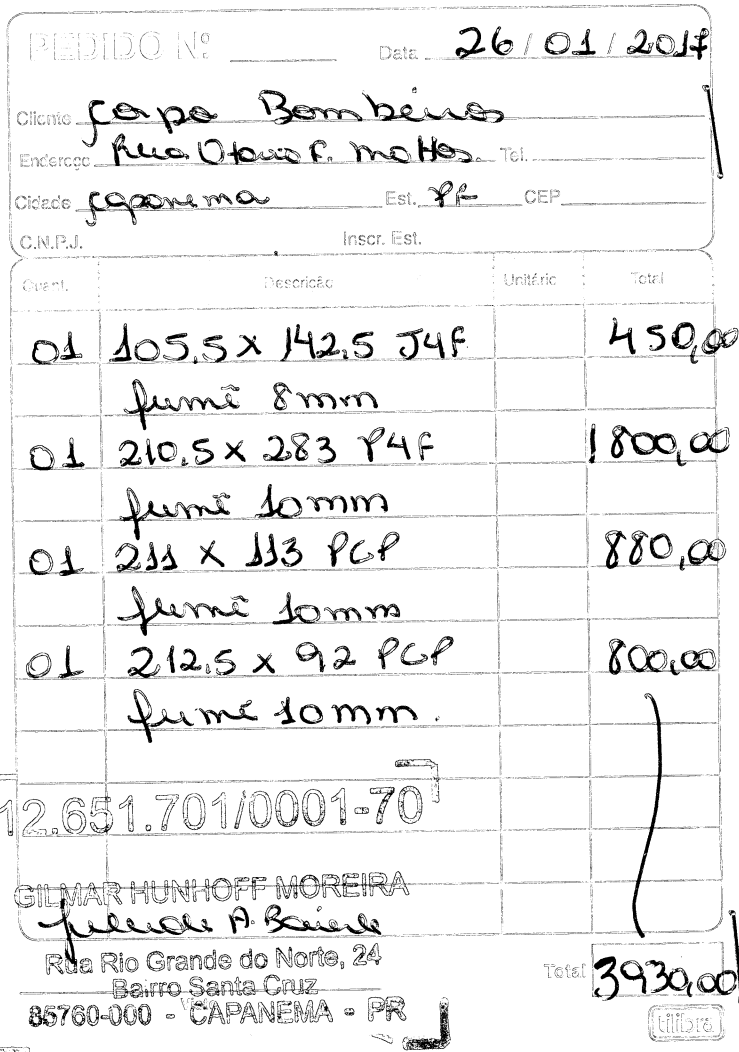 PEDIDO Nº Data 26 / 01 / 2017
Cliente Bombeiros
Endereço Rua Otavio F. Mattos. Tel.
Cidade Capanema Est. PR CEP
C.N.P.J. Inscr. Est.
Quant. Descrição Unitário Total
01 105,5 x 142,5 J4F 450,00
fumê 8mm
01 210,5 x 283 P4F 1800,00
fumê 10mm
01 211 x 113 PCP 880,00
fumê 10mm
01 212,5 x 92 PCP 800,00
fumê 10mm.
12.651.701/0001-70
GILMAR HUNHOFF MOREIRA
Rua Rio Grande do Norte, 24
Bairro Santa Cruz
85760-000 - CAPANEMA - PR
Total 3930,00
tilibra